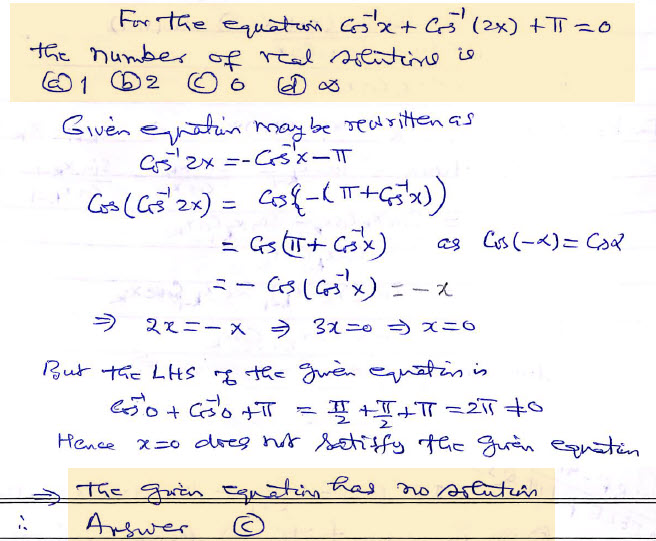 For the equation Cos⁻¹x + Cos⁻¹(2x) + π = 0
the number of real solutions is
(a) 1 (b) 2 (c) 0 (d) ∞
Given equation may be rewritten as
Cos⁻¹ 2x = - Cos⁻¹x - π
Cos(Cos⁻¹ 2x) = Cos{-(π + Cos⁻¹x))
= Cos(π + Cos⁻¹x) as Cos(-α) = Cosα
= - Cos(Cos⁻¹x) = -x
⇒ 2x = - x ⇒ 3x = 0 ⇒ x = 0
But the LHS of the given equation is
Cos⁻¹0 + Cos⁻¹0 + π = π/2 + π/2 + π = 2π ≠ 0
Hence x = 0 does not satisfy the given equation
⇒ The given equation has no solution
∴ Answer (c)